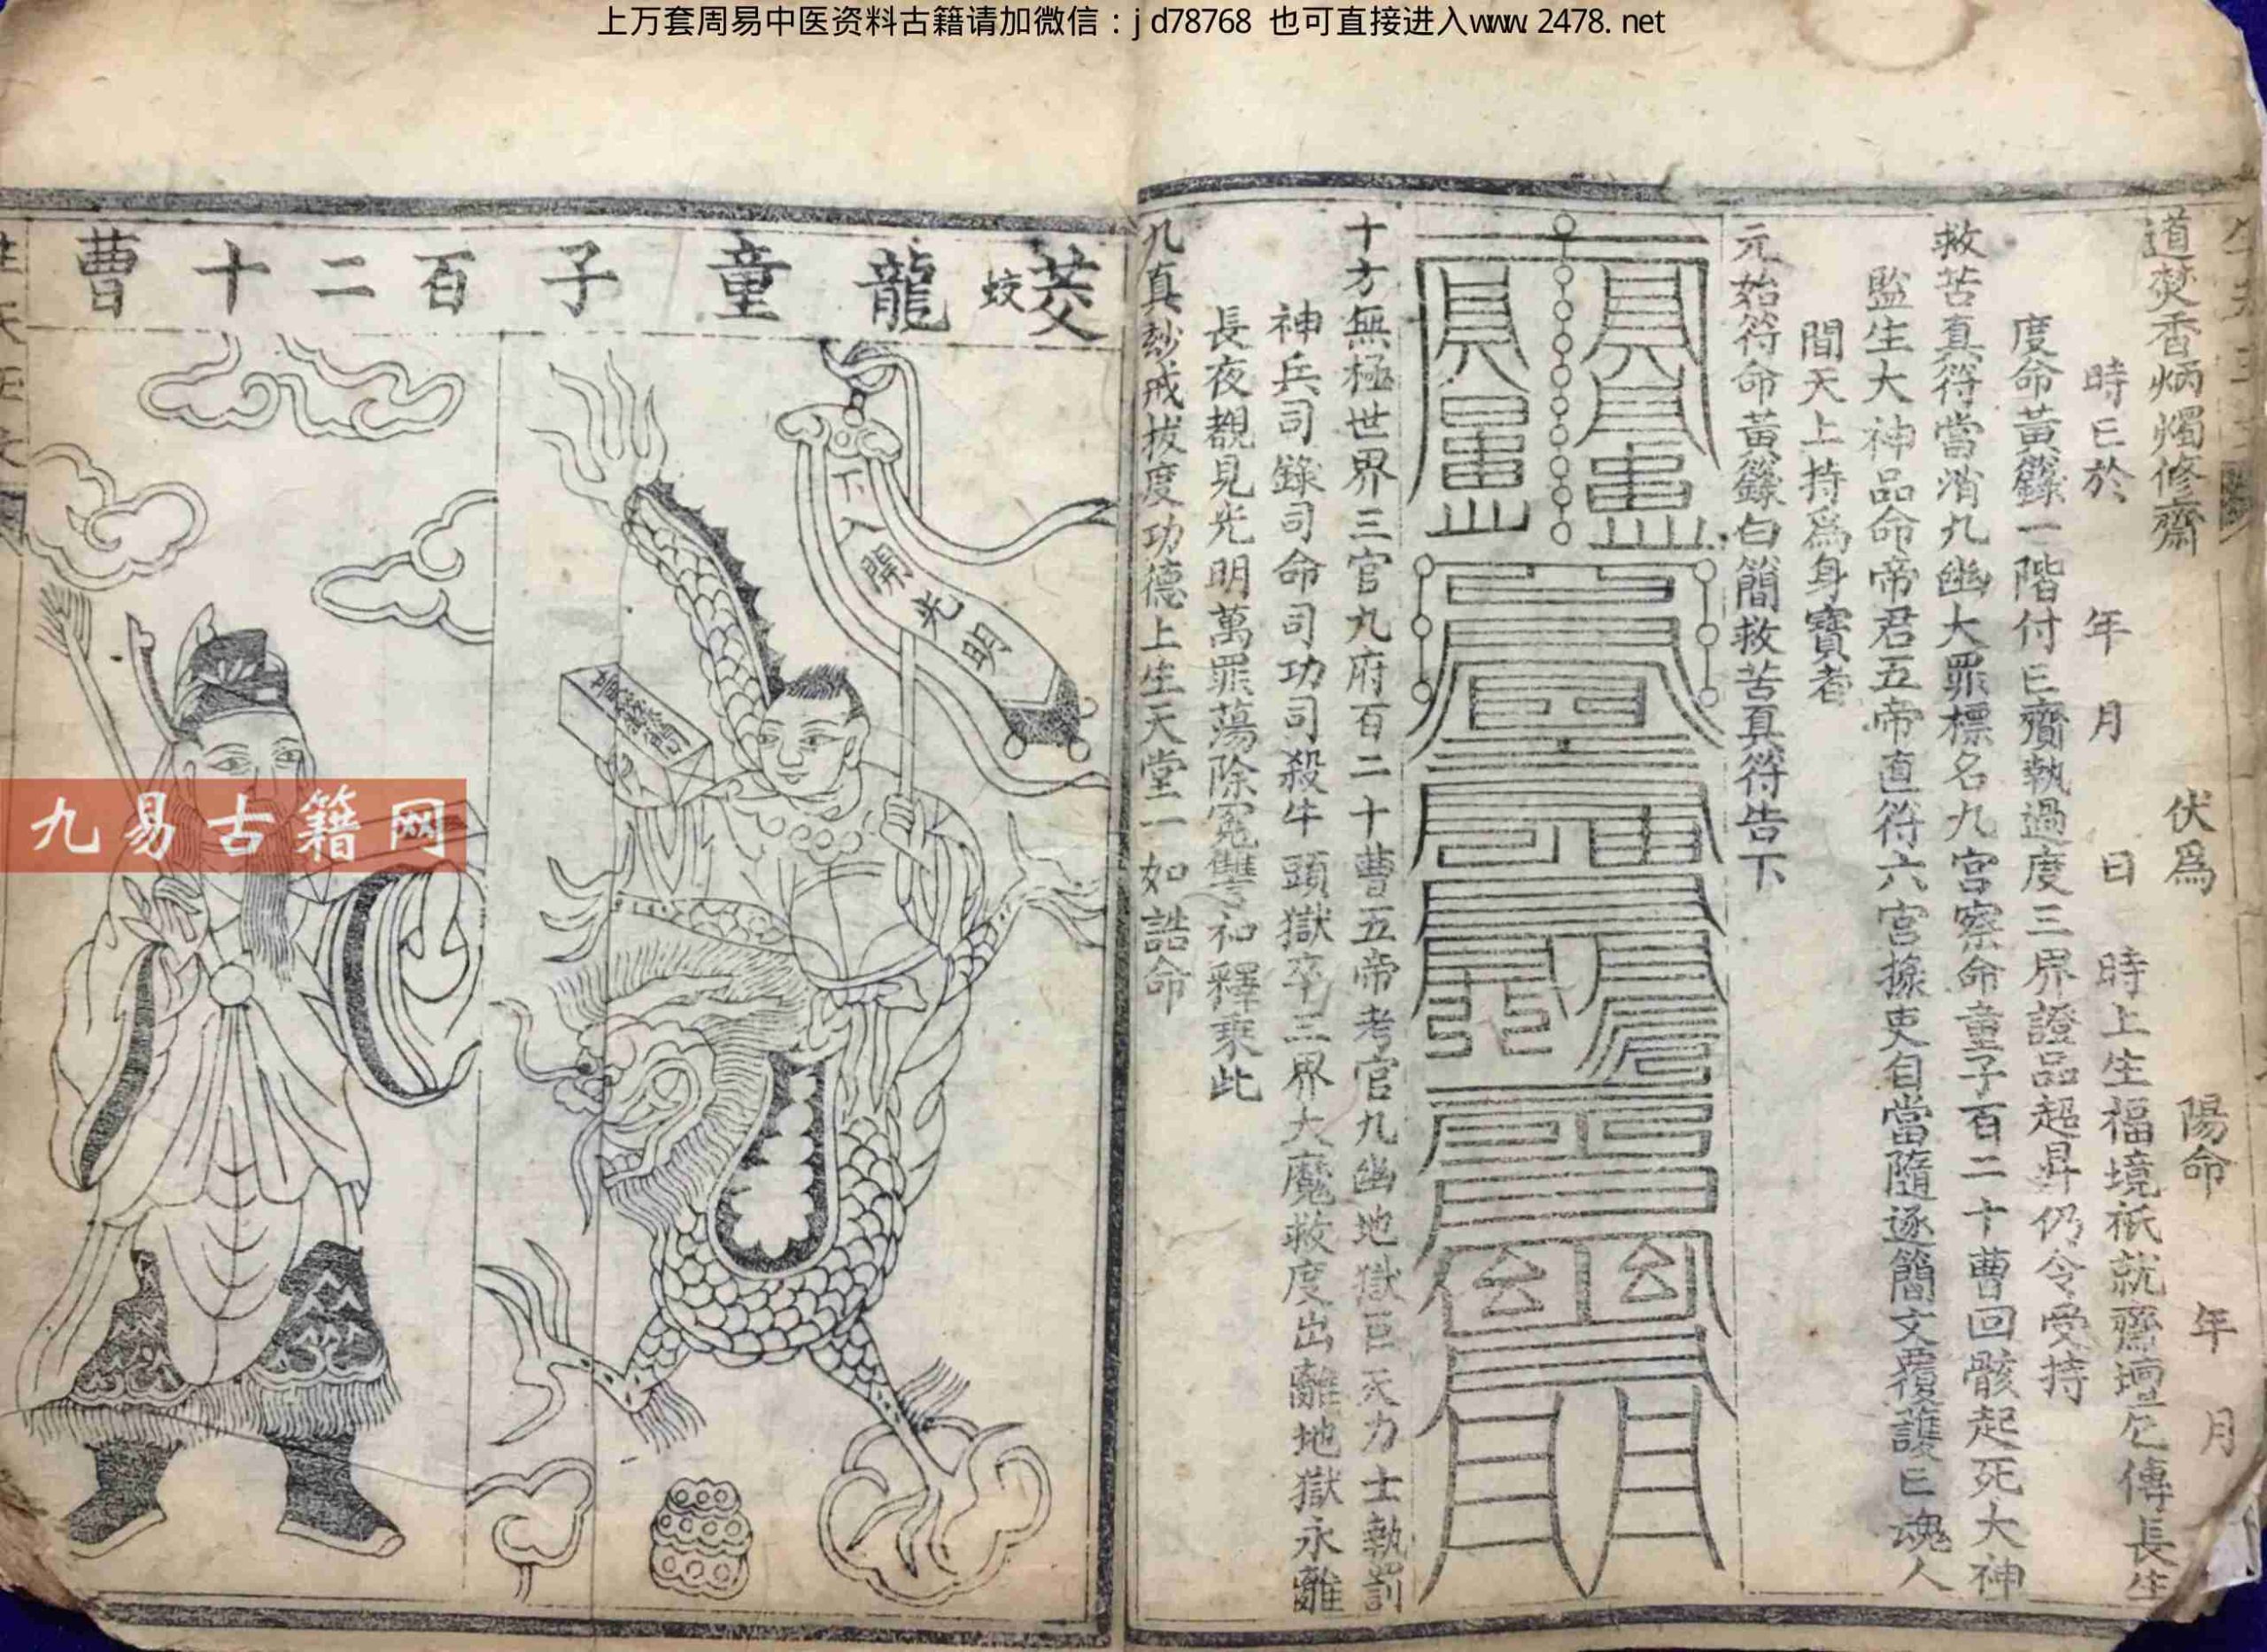 上万套周易中医资料古籍请加微信：jd78768 也可直接进入www.2478.net
道焚香炳燭修齋 伏爲 陽命 年 月
時㠯於 年 月 日 時上生福境祇就齋壇乞傳長生
度命黃籙一階付㠯齎執過度三界證品超昇仍令受持
救苦真符當消九幽大罪標名九宮察命童子百二十曹回骸起死大神
監生大神品命帝君五帝直符六宮掾吏自當隨逐簡文覆護㠯魂人
間天上持爲身寶者
元始符命黃籙白簡救苦真符告下
十方無極世界三官九府百二十曹五帝考官九幽地獄巨天力士執罰
神兵司錄司命司功司殺牛頭獄卒三界大魔救度出離地獄永離
長夜覩見光明萬罪蕩除冤讐和釋乘此
九真玅戒拔度功德上生天堂一如誥命
茭蛟龍童子百二十曹
開光明
九易古籍网